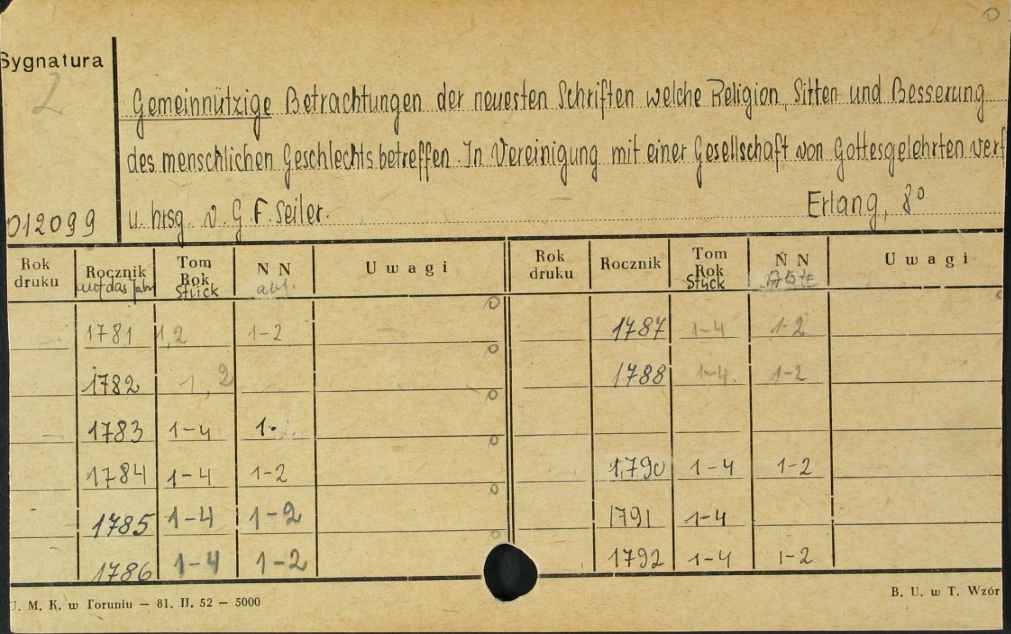 Sygnatura
2
Gemeinnützige Betrachtungen der neuesten Schriften welche Religion, Sitten und Besserung
des menschlichen Geschlechts betreffen. In Vereinigung mit einer Gesellschaft von Gottesgelehrten verf
012099 u. hrsg. v. G F. Seiler. Erlang, 8°
Rok druku Rocznik auf das Jahr Tom Rok Stück N N abt. Uwagi Rok druku Rocznik Tom Rok Stück N N Uwagi
1781 1,2 1-2 1787 1-4 1-2
1782 1,2 1788 1-4. 1-2
1783 1-4 1.
1784 1-4 1-2 1790 1-4 1-2
1785 1-4 1-2 1791 1-4
1786 1-4 1-2 1792 1-4 1-2
U. M. K. w Toruniu — 81. II. 52 — 5000 B. U. w T. Wzór